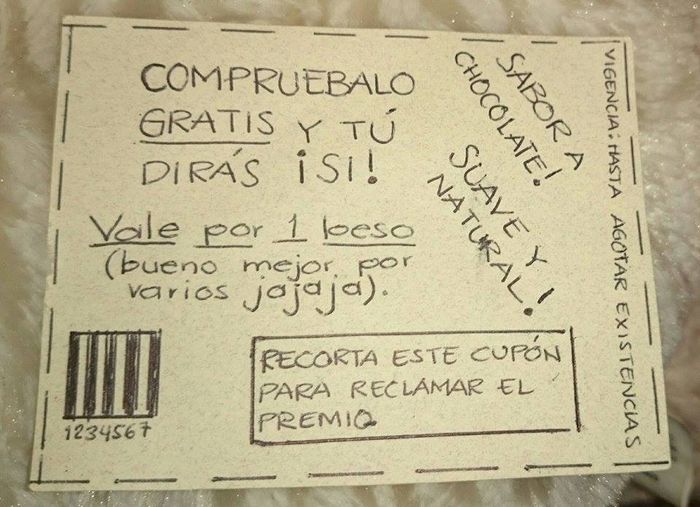 COMPRUEBALO
GRATIS Y TÚ
DIRÁS ¡SI!
SABOR A
CHOCOLATE!
SUAVE Y
NATURAL!
VIGENCIA: HASTA AGOTAR EXISTENCIAS
Vale por 1 beso
(bueno mejor por
varios jajaja).
1234567
RECORTA ESTE CUPÓN
PARA RECLAMAR EL
PREMIO